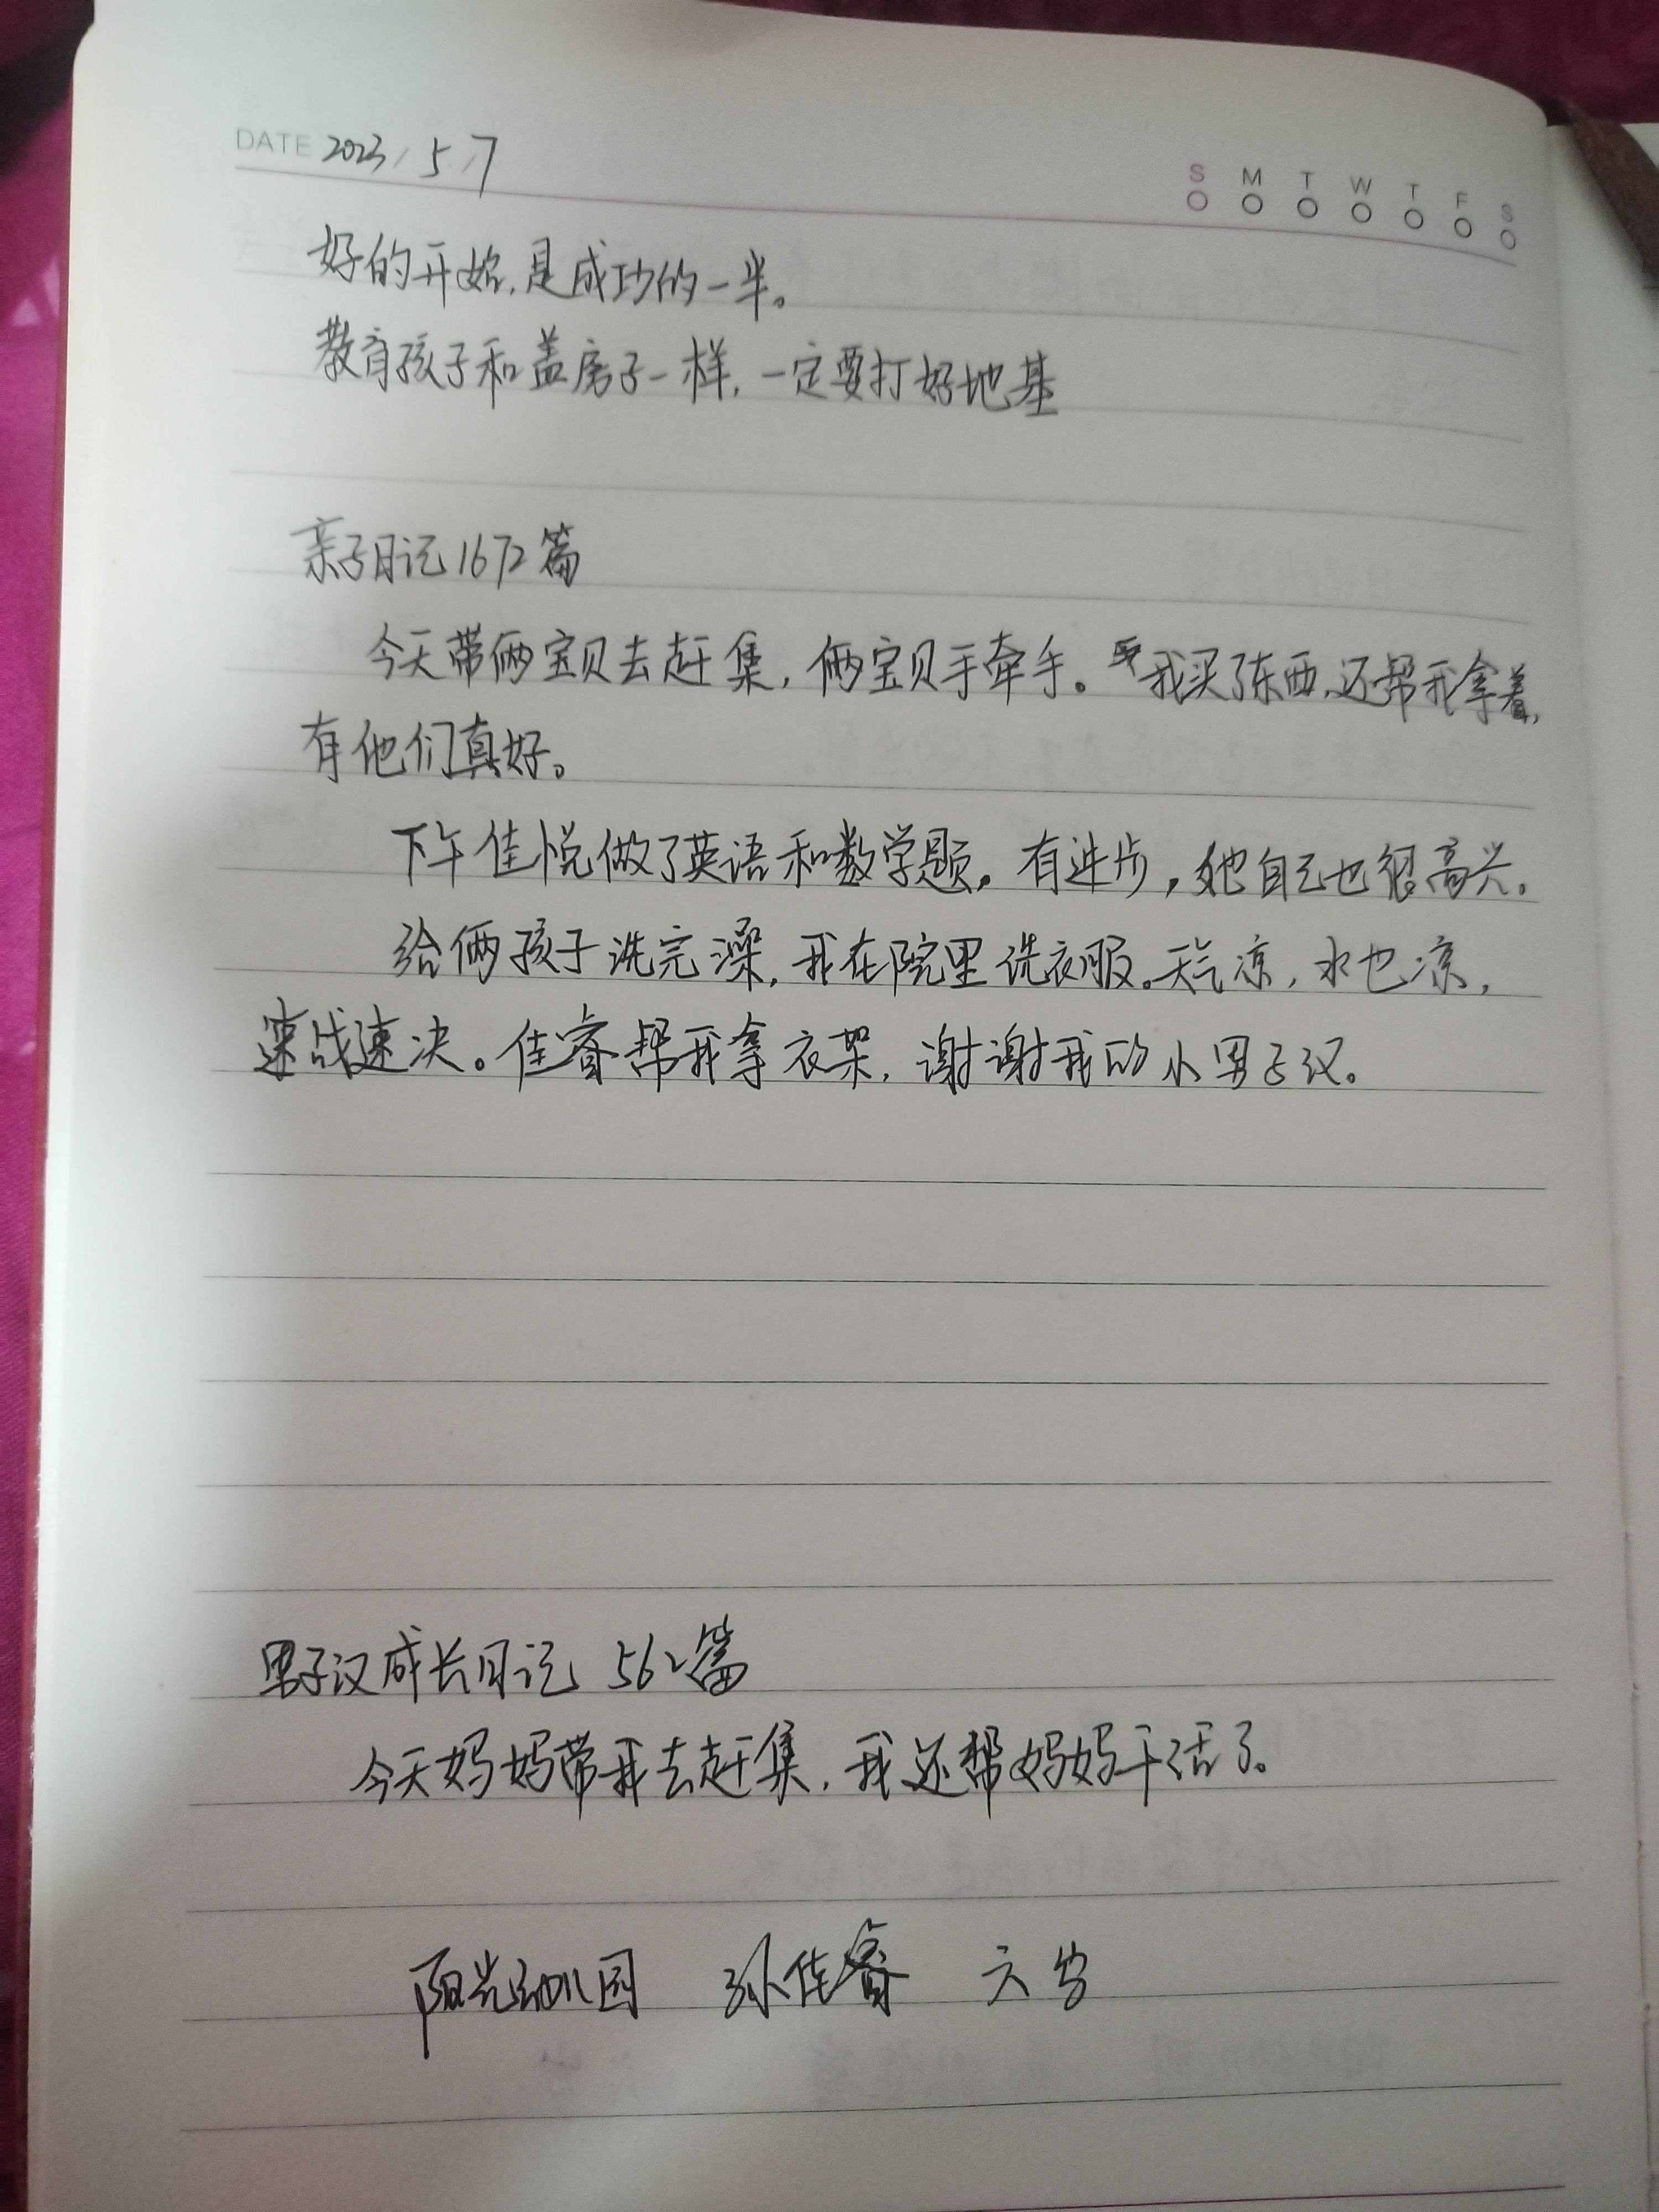 DATE 2023/5/7
S M T W T F S
好的开始,是成功的一半。
教育孩子和盖房子一样,一定要打好地基
亲子日记1672篇
今天带俩宝贝去赶集,俩宝贝手牵手。我买了东西,还帮我拿着,
有他们真好。
下午佳悦做了英语和数学题。有进步,她自己也很高兴。
给俩孩子洗完澡,我在院里洗衣服。天气凉,水也凉,
速战速决。佳睿帮我拿衣架,谢谢我的小男子汉。
男子汉成长日记 562篇
今天妈妈带我去赶集,我还帮妈妈干活了。
阳光幼儿园 孙佳睿 六岁